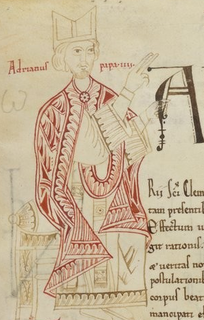 Adrianus papa · iiii ·
A
Rii sci Clem
tam presentib
Effectum u
git rationis.
æ veritas no
postulationib
corpus beat
mancipari et